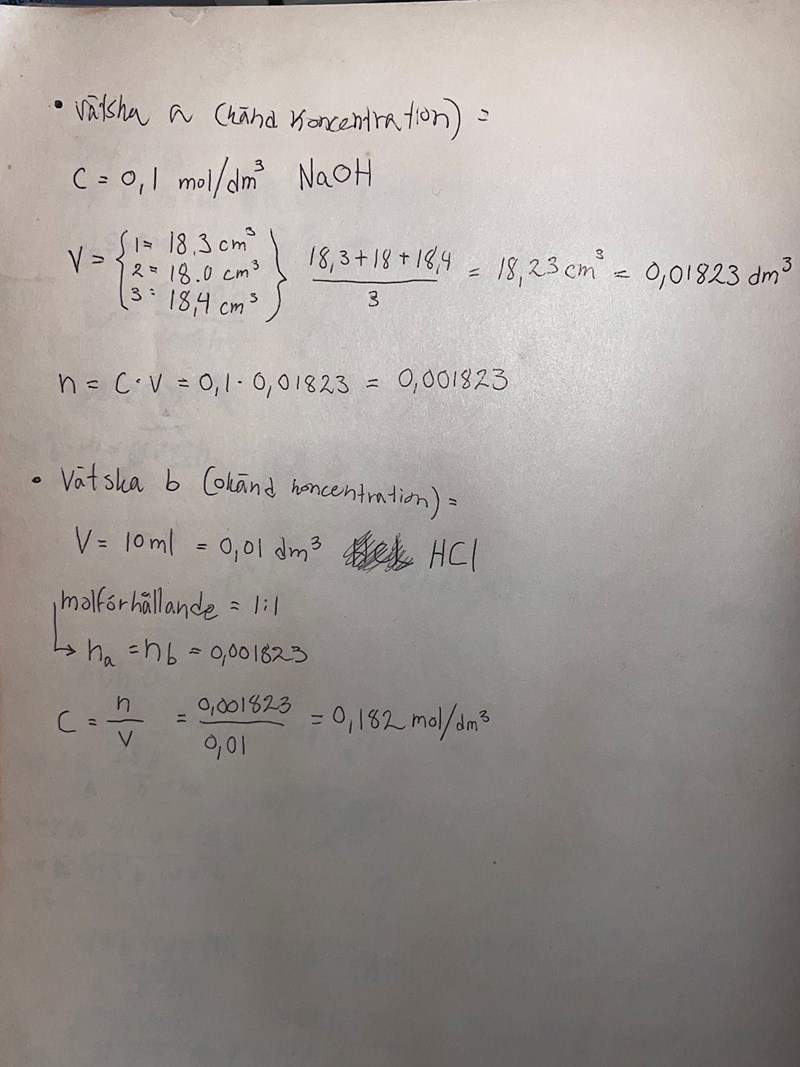 • Vätska a (känd koncentration) =
C = 0,1 mol/dm³ NaOH
V = { 1 = 18,3 cm³
2 = 18.0 cm³
3 = 18,4 cm³ } (18,3 + 18 + 18,4) / 3 = 18,23 cm³ = 0,01823 dm³
n = C · V = 0,1 · 0,01823 = 0,001823
• Vätska b (okänd koncentration) =
V = 10 ml = 0,01 dm³ HCl
molförhållande = 1:1
↳ nₐ = nb = 0,001823
C = n / V = 0,001823 / 0,01 = 0,182 mol/dm³